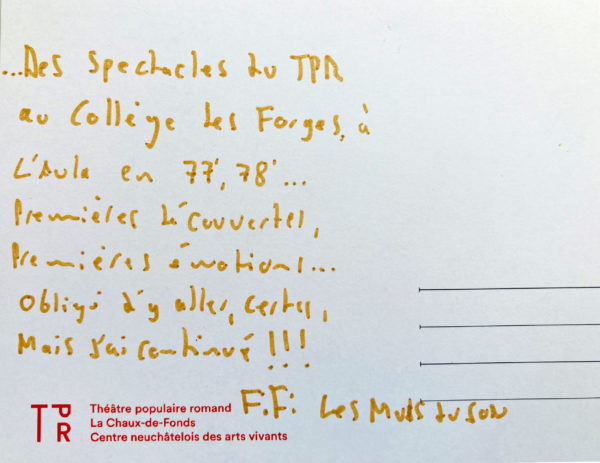 ...Des spectacles du TPR
au Collège des Forges, à
L'Aula en 77', 78'...
Premières découvertes,
Premières émotions...
obligé d'y aller, certes,
Mais j'ai continué !!!
F.F: Les Murs du son
TPR
Théâtre populaire romand
La Chaux-de-Fonds
Centre neuchâtelois des arts vivants